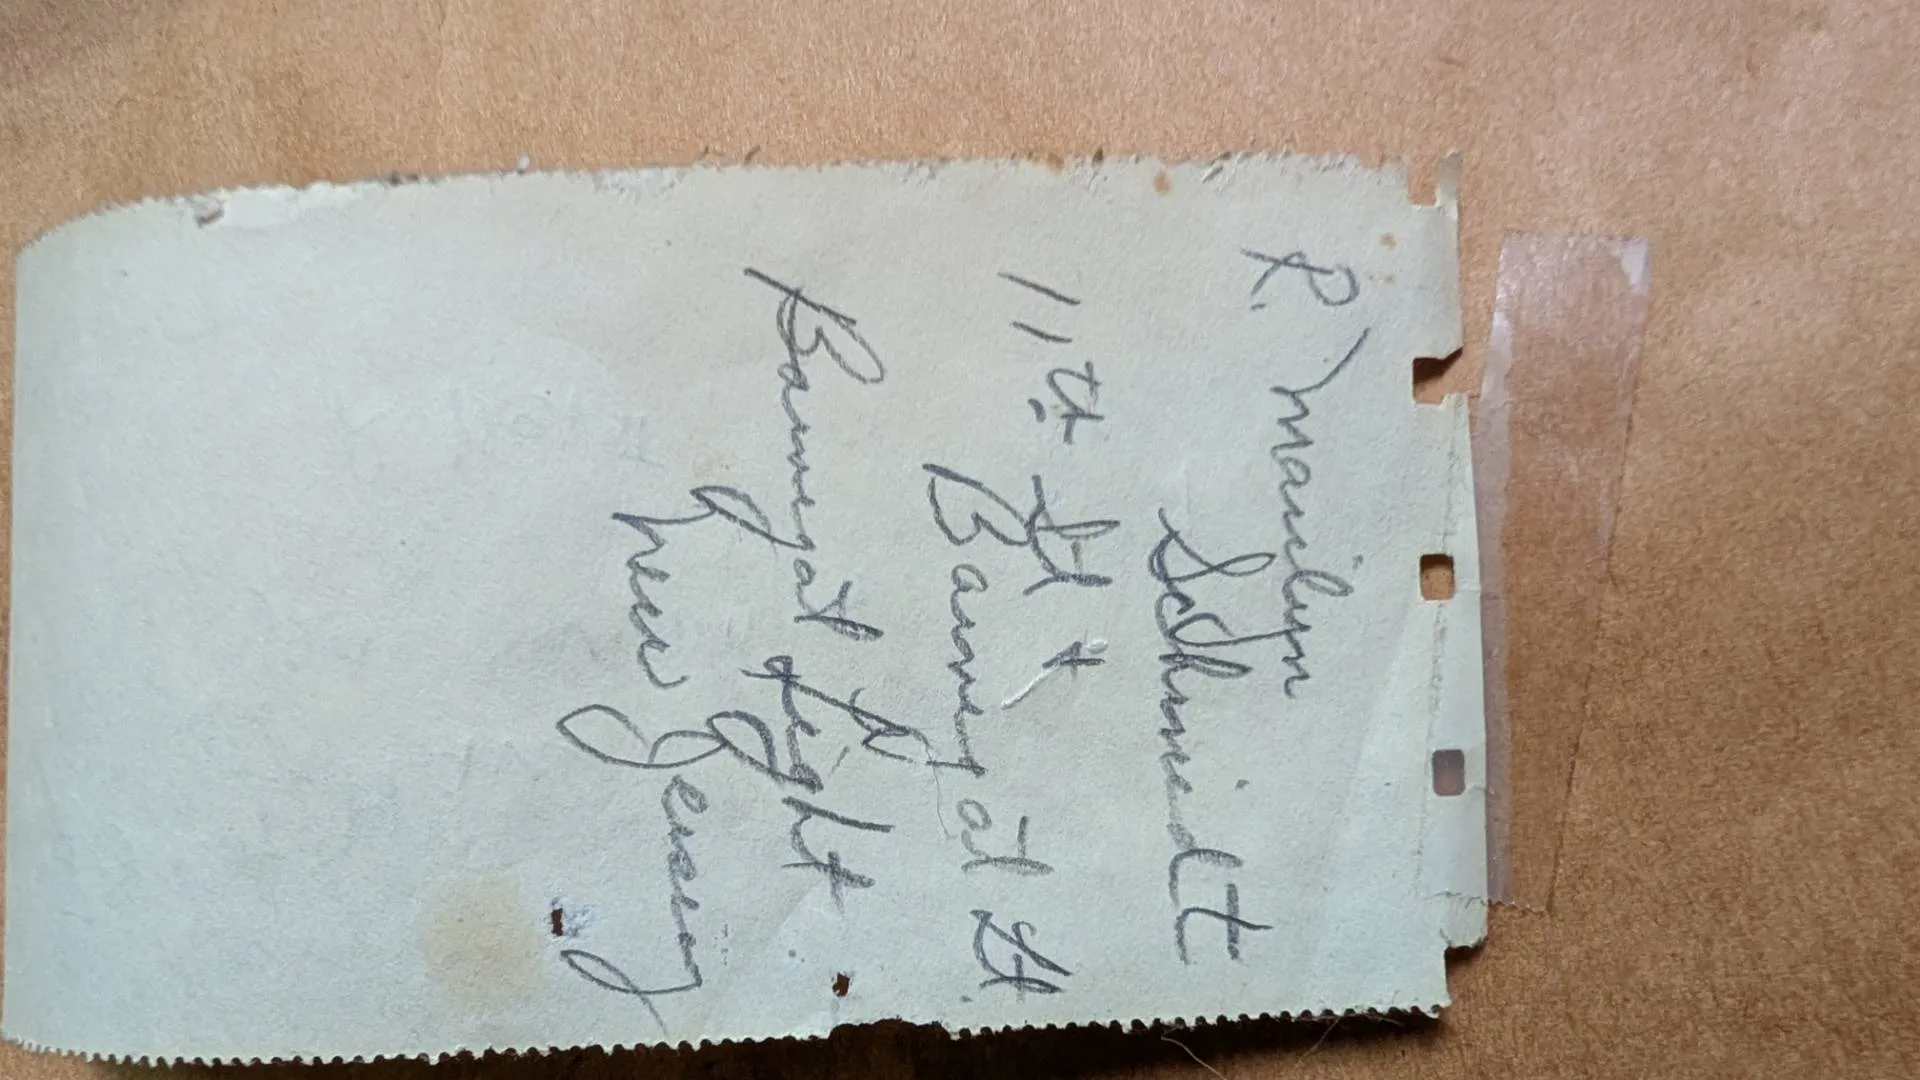 R. Marilyn
Schmidt
11th St +
Barnegat St.
Barnegat Light
New Jersey